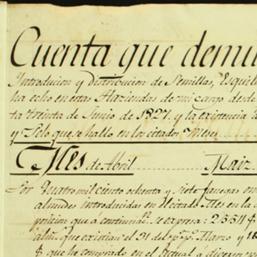 Cuenta que demu
Introducion y Distribucion de Semillas, Esquil
ha echo en estas Haziendas de mi cargo desde
ta treinta de Junio de 1827. y la existencia
y Pelo que se halla en los citados Meses
Mes de Abril Maiz
Por Quatro mil ciento ochenta y siete fanegas
almudes introducidas en Mes en la
posicion que a continuaⁿ. se expresa: 2554
que existian el 31 del Marzo y
que ha comprado en el Actual a